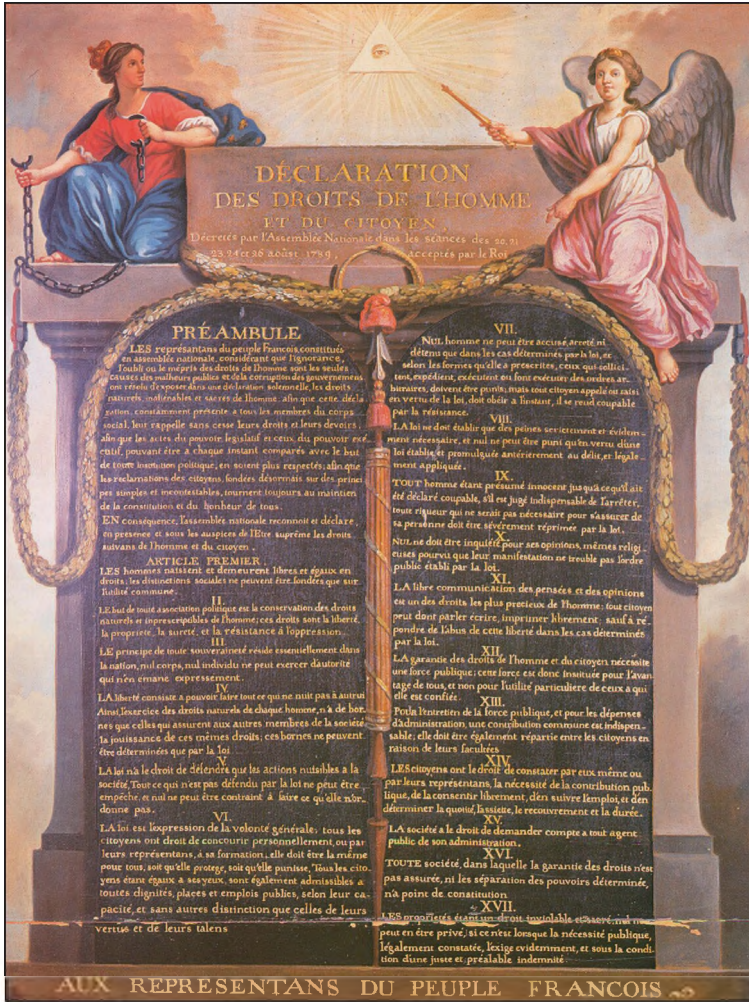 DÉCLARATION
DES DROITS DE L'HOMME
ET DU CITOYEN,
Décretés par l'Assemblée Nationale dans les séances des 20, 21
23, 24 et 26 aoûst 1789, acceptés par le Roi
PRÉAMBULE
LES représantans du peuple François, constitués
en assemblée nationale, considérant que l'ignorance,
l'oubli ou le mépris des droits de l'homme sont les seules
causes des malheurs publics et de la corruption des gouvernemens
ont résolu d'exposer dans une déclaration solemnelle, les droits
naturels, inaliénables et sacrés de l'homme; afin que cette décla
ration, constamment présente a tous les membres du corps
social, leur rappelle sans cesse leurs droits et leurs devoirs
afin que les actes du pouvoir législatif et ceux du pouvoir exé
cutif, pouvant être a chaque instant comparés avec le but
de toute institution politique, en soient plus respectés; afin que
les reclamations des citoyens, fondées désormais sur des princi
pes simples et incontestables, tournent toujours au maintien
de la constitution et du bonheur de tous.
EN conséquence, l'assemblée nationale reconnoit et déclare,
en presence et sous les auspices de l'Etre suprême les droits
suivans de l'homme et du citoyen.
ARTICLE PREMIER.
LES hommes naissent et demeurent libres et égaux en
droits, les distinctions sociales ne peuvent être fondées que sur
l'utilité commune.
II.
LE but de toute association politique est la conservation des droits
naturels et inprescriptibles de l'homme; ces droits sont la liberté,
la propriete, la sureté, et la résistance à l'oppression.
III.
LE principe de toute souveraineté réside essentiellement dans
la nation, nul corps, nul individu ne peut exercer d'autorité
qui n'en émane expressement.
IV.
LA liberté consiste a pouvoir faire tout ce qui ne nuit pas à autrui
Ainsi, l'exercice des droits naturels de chaque homme, n'a de bor
nes que celles qui assurent aux autres membres de la société
la jouissance de ces mêmes droits; ces bornes ne peuvent
être déterminées que par la loi
V.
LA loi n'a le droit de défendre que les actions nuisibles a la
société, Tout ce qui n'est pas défendu par la loi ne peut être
empêché, et nul ne peut être contraint à faire ce qu'elle n'or-
donne pas.
VI.
LA loi est l'expression de la volonté générale; tous les
citoyens ont droit de concourir personnellement, ou par
leurs représentans, à sa formation; elle doit être la même
pour tous, soit qu'elle protege, soit qu'elle punisse, Tous les cito
yens étant égaux à ses yeux, sont également admissibles à
toutes dignités, places et emplois publics, selon leur ca
pacité, et sans autres distinction que celles de leurs
vertus et de leurs talens
VII.
NUL homme ne peut être accusé, arreté ni
détenu que dans les cas déterminés par la loi, et
selon les formes qu'elle a prescrites, ceux qui sollici-
tent, expédient, exécutent ou font exécuter des ordres ar-
bitraires, doivent être punis; mais tout citoyen appelé ou saisi
en vertu de la loi, doit obéir a l'instant, il se rend coupable
par la résistance.
VIII.
LA loi ne doit établir que des peines strictement et évidem-
ment nécessaire, et nul ne peut être puni qu'en vertu d'une
loi établie et promulguée antérierement au délit, et légale-
ment appliquée.
IX.
TOUT homme étant présumé innocent jusqu'à ce qu'il ait
été déclaré coupable, s'il est jugé indispensable de l'arrêter,
toute rigueur qui ne serait pas nécessaire pour s'assurer de
sa personne doit être sévèrement réprimée par la loi.
X.
NUL ne doit être inquiété pour ses opinions, mêmes religi
euses pourvu que leur manifestation ne trouble pas l'ordre
public établi par la loi.
XI.
LA libre communication des pensées et des opinions
est un des droits les plus precieux de l'homme; tout citoyen
peut dont parler écrire, imprimer librement; sauf à ré
pondre de l'abus de cette liberté dans les cas déterminés
par la loi.
XII.
LA garantie des droits de l'homme et du citoyen nécessite
une force publique; cette force est donc instituée pour l'avan
tage de tous, et non pour l'utilité particuliere de ceux a qui
elle est confiée.
XIII.
POUR l'entretien de la force publique, et pour les dépenses
d'administration, une contribution commune est indispen-
sable; elle doit être également répartie entre les citoyens en
raison de leurs facultées
XIV.
LES citoyens ont le droit de constater par eux même ou
par leurs représentans, la nécessité de la contribution pub-
lique, de la consentir librement, d'en suivre l'emploi, et d'en
déterminer la quotité, l'assiette, le recouvrement et la durée.
XV.
LA société a le droit de demander compte a tout agent
public de son administration.
XVI.
TOUTE société, dans laquelle la garantie des droits n'est
pas assurée, ni les séparation des pouvoirs déterminée,
n'a point de constitution
XVII.
LES propriétés étant un droit inviolable et sacré, nul ne
peut en être privé, si ce n'est lorsque la nécessité publique,
légalement constatée, l'exige evidemment, et sous la condi
tion d'une juste et préalable indemnité
AUX REPRESENTANS DU PEUPLE FRANCOIS